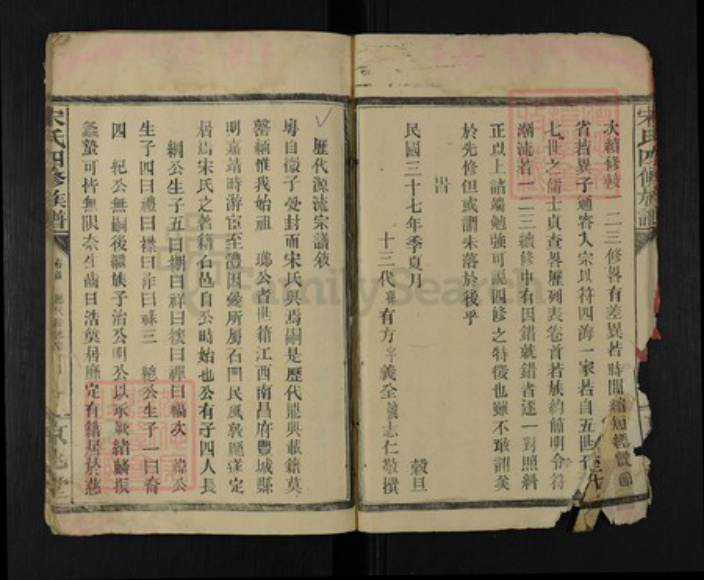 次續修較一二三修畧有差異若時間縮短經費節
省若異子通容入宗以符四海一家若自五世
七世之儒士貞查畧歷列表卷首若族約簡明令符
潮流若一二三續修中有因錯就錯者逐一對照糾
正以上諸端勉強可説四修之特徵也雖不敢謂美
於先修但或謂未落於後乎
民國三十七年季夏月 穀旦
十三代有方義全志仁敬撰
宋氏四修族譜
歷代源流宗議敘
粵自微子受封而宋氏興焉嗣是歷代龍興載籍莫
罄緬惟我始祖 瑯公者世籍江西南昌府豐城縣
明嘉靖時游宦至澧因愛所屬石門民風敦龐遂定
居焉宋氏之著籍石邑自公時始也公有子四人長
綱公生子五曰棚曰祥曰樸曰禪曰福次 緯公
生子四曰禮曰襟曰祚曰祿三 公生子一曰裔
四 紀公無嗣後繼族子治公明公以承厥緒麟振
螽蟄可皆無限奈生齒日浩奠居靡定有籍居於慈
宋氏四修族譜
FamilySearch